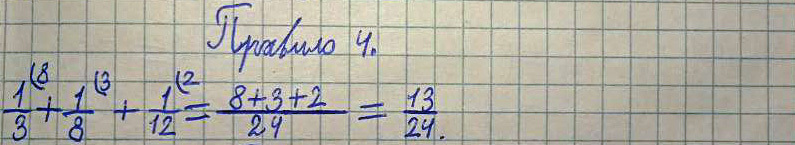 Правило 4.
1/3 (8 + 1/8 (3 + 1/12 (2 = 8+3+2/24 = 13/24.